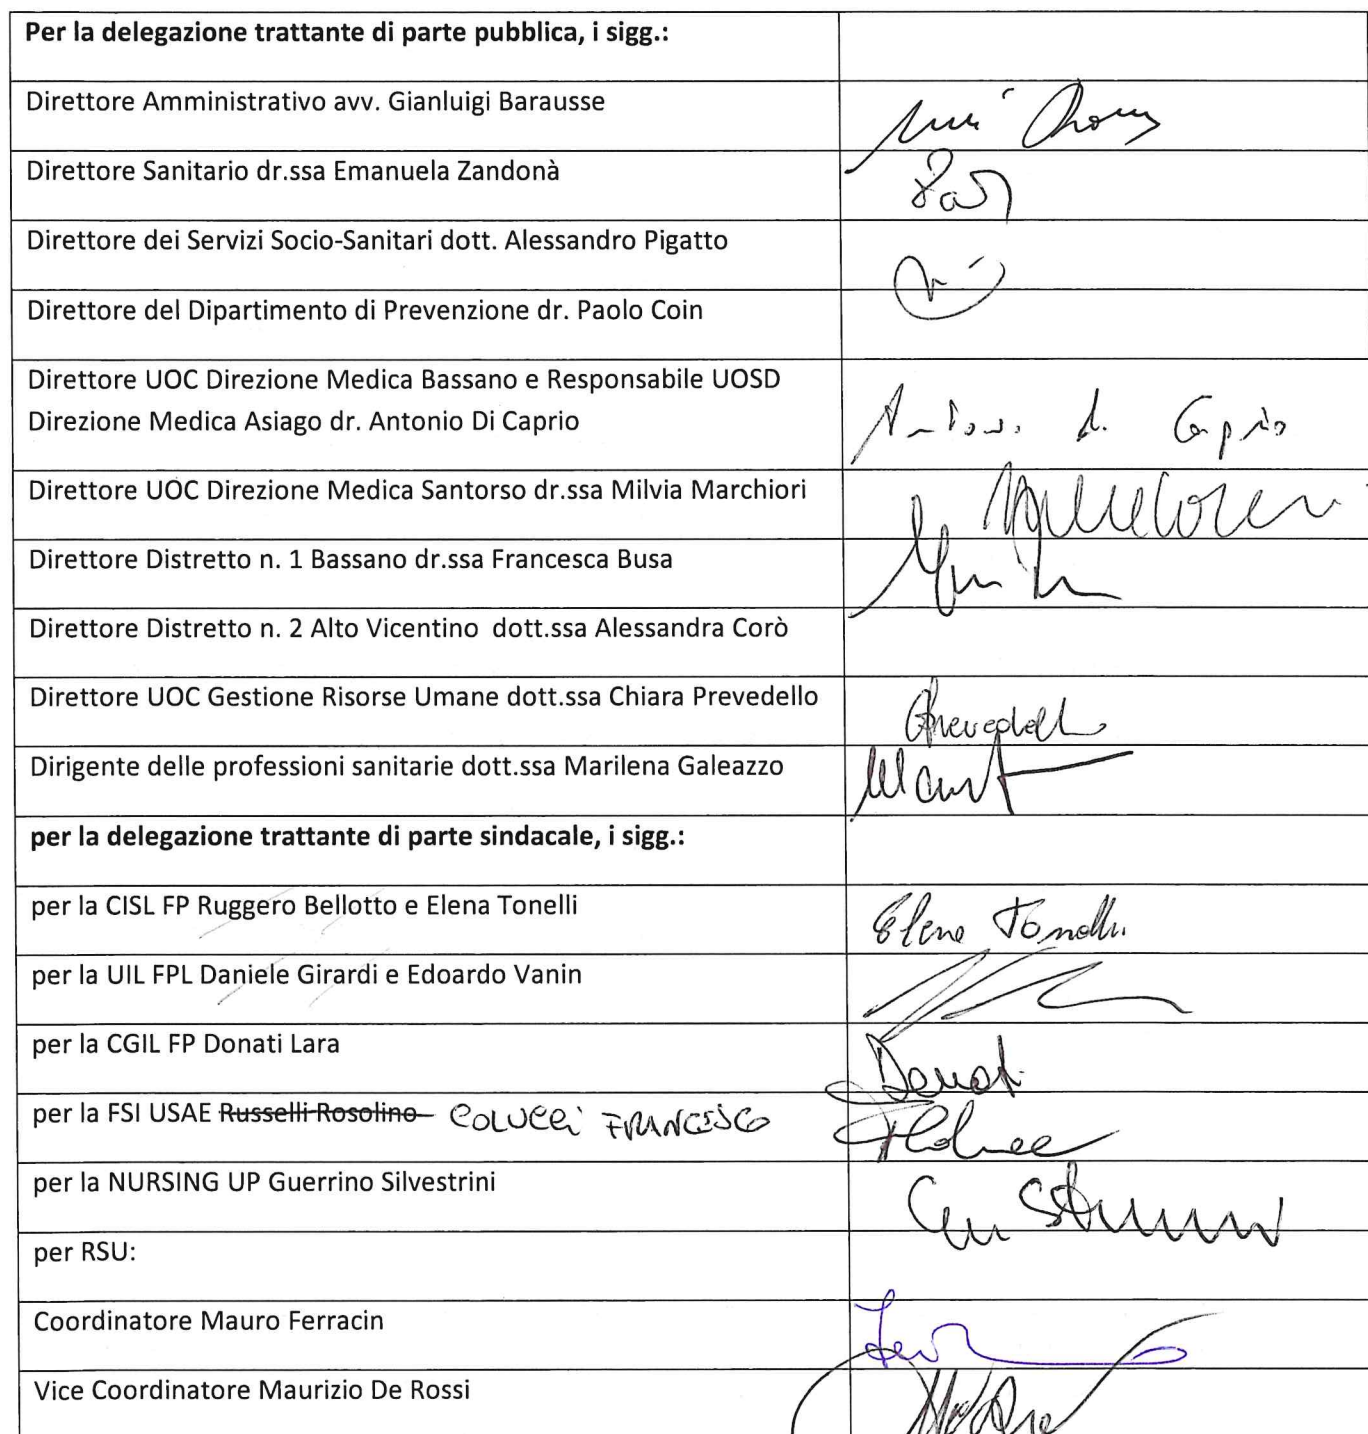 Per la delegazione trattante di parte pubblica, i sigg.:
Direttore Amministrativo avv. Gianluigi Barausse
Direttore Sanitario dr.ssa Emanuela Zandonà
Direttore dei Servizi Socio-Sanitari dott. Alessandro Pigatto
Direttore del Dipartimento di Prevenzione dr. Paolo Coin
Direttore UOC Direzione Medica Bassano e Responsabile UOSD
Direzione Medica Asiago dr. Antonio Di Caprio
Antonio di Caprio
Direttore UOC Direzione Medica Santorso dr.ssa Milvia Marchiori
Direttore Distretto n. 1 Bassano dr.ssa Francesca Busa
Direttore Distretto n. 2 Alto Vicentino dott.ssa Alessandra Corò
Direttore UOC Gestione Risorse Umane dott.ssa Chiara Prevedello
Dirigente delle professioni sanitarie dott.ssa Marilena Galeazzo
per la delegazione trattante di parte sindacale, i sigg.:
per la CISL FP Ruggero Bellotto e Elena Tonelli Elena Tonelli
per la UIL FPL Daniele Girardi e Edoardo Vanin
per la CGIL FP Donati Lara Donati
per la FSI USAE Russelli Rosolino COLUCCI FRANCESCO
per la NURSING UP Guerrino Silvestrini
per RSU:
Coordinatore Mauro Ferracin
Vice Coordinatore Maurizio De Rossi